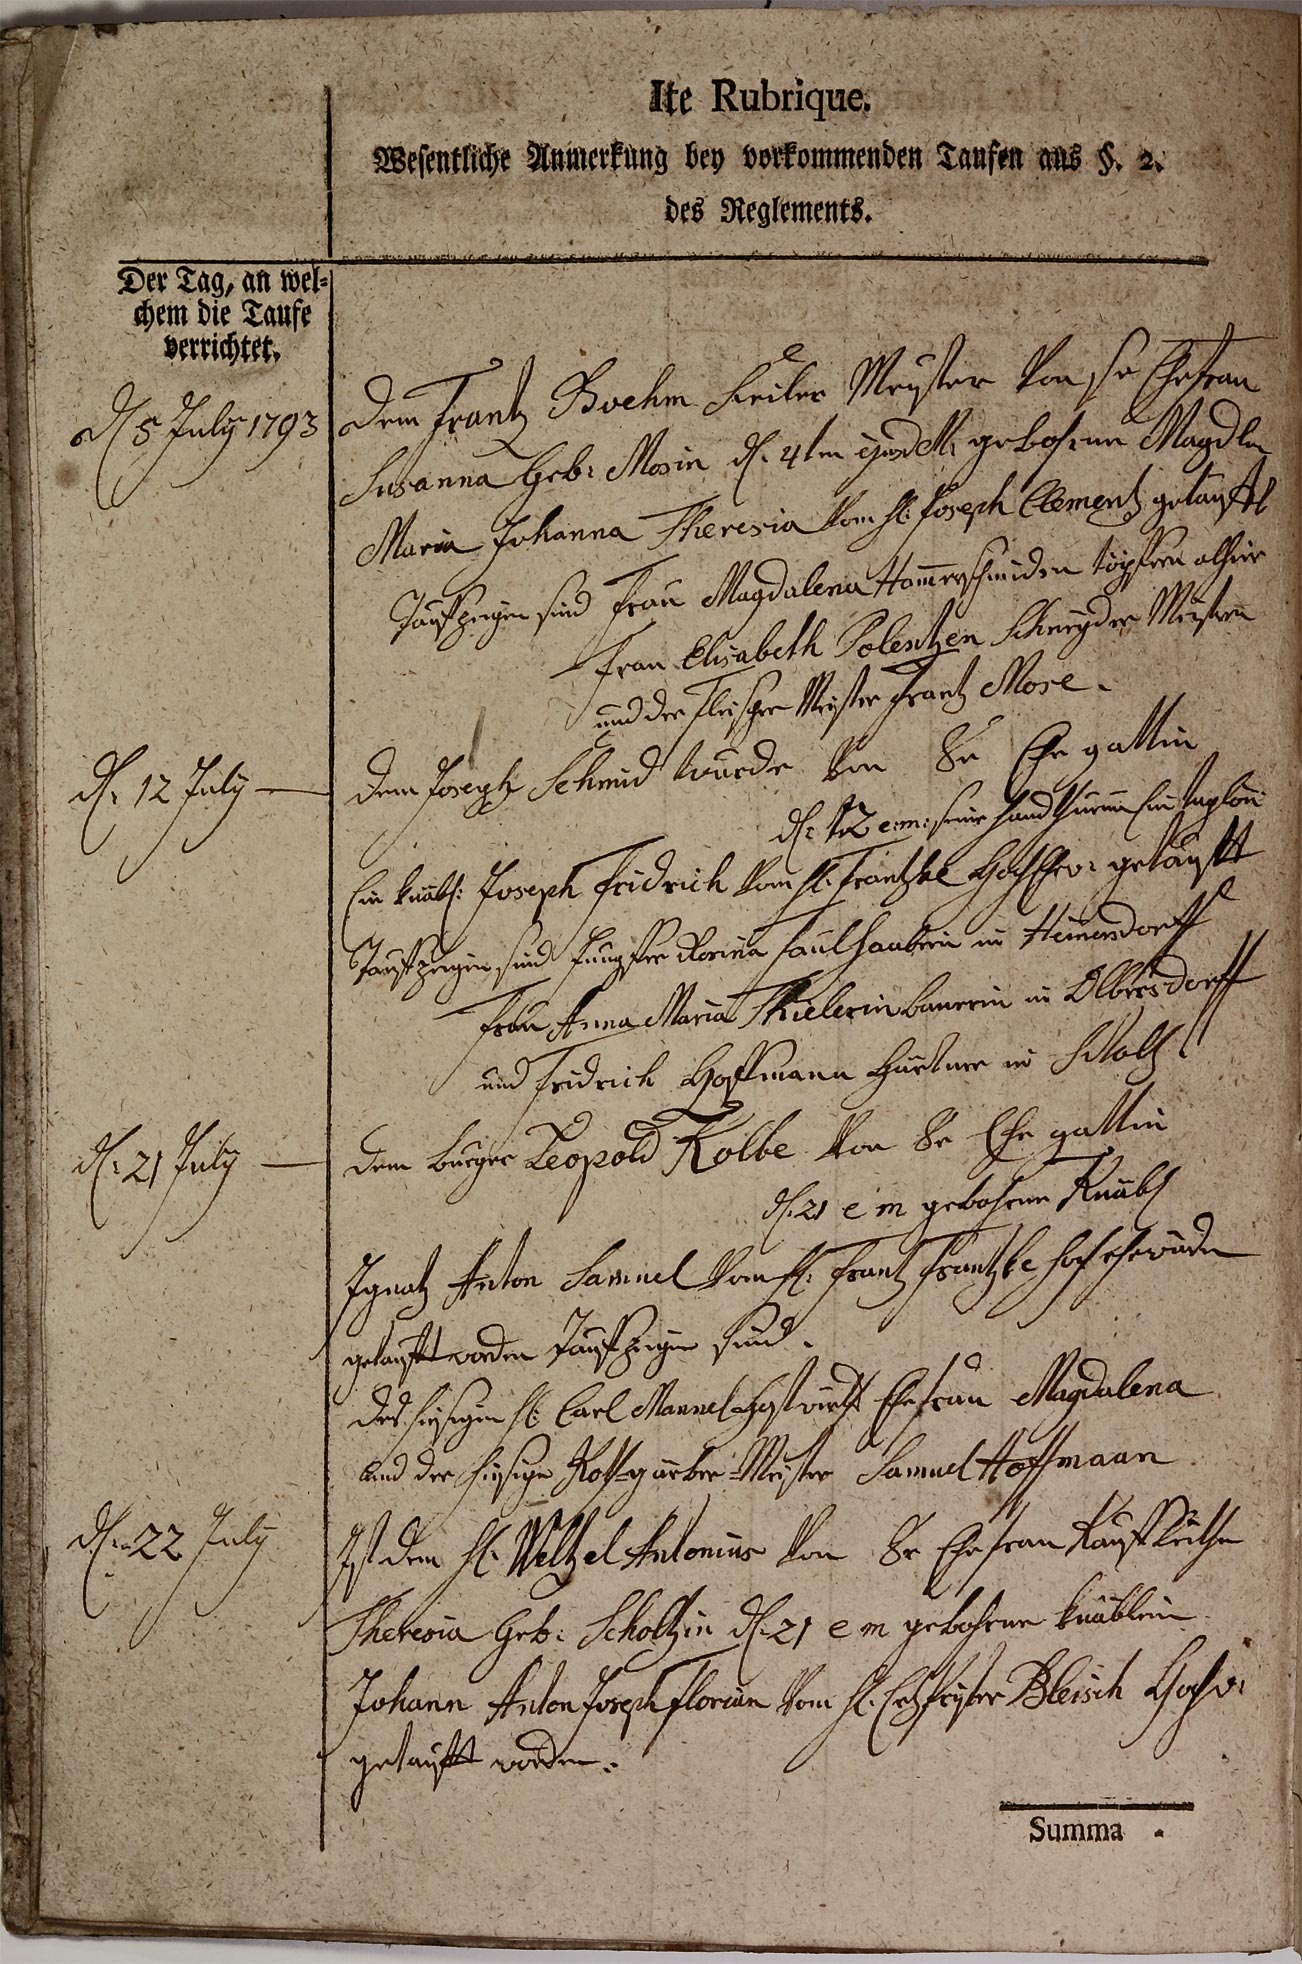 Ite Rubrique.
Wesentliche Anmerkung bey vorkommenden Taufen aus §. 2.
des Reglements.
Der Tag, an wel-
chem die Taufe
verrichtet.
d 5 July 1793
Dem Frantz Boehm Seiler Meyster von sr Ehefrau
Susanna Geb: Mosin d. 4ten gebohrene Magdln
Maria Johanna Theresia vom H: Joseph Clementz getaufft
Taufzeugen sind Frau Magdalena Hammerschmiden töpffern alhier
Frau Elisabeth Polentzen Schneyder Meistern
und der Fleischer Meyster Frantz Mose.
d. 12 July
Dem Joseph Schmid wurde von Sr Ehe gattin
d: 12 e: m:
Ein knäbl: Joseph Fridrich vom H: Frantzke HochEhrw: getaufft
Taufzeugen sind Jungffer Rosina Faulhaubein in Heinersdorff
Frau Anna Maria Thielerin bauerin in Olbersdorff
und Fridrich Hoffmann Gärtner in Stolz
d: 21 July
Dem burger Leopold Kolbe von Sr Ehe gattin
d. 21 e m gebohrene Knäbl
Ignatz Anton Samuel vom H: Frantz Frantzke
getaufft worden Taufzeugen sind.
des hiesigen H: Carl Mannel Gastwirth Ehefrau Magdalena
und der hiesige Roth-gärber-Meister Samuel Hoffmaan
d. 22 July
Ist dem H. Weltzel Antonius von Sr Ehefrau
Theresia Geb: Scholtzin d. 21 e m gebohrene knäblein
Johann Anton Joseph Florian vom H. Ertzprister Bleisch Hochw:
getaufft worden.
Summa